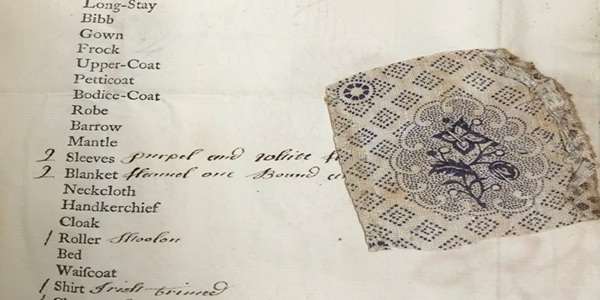 Long-Stay
Bibb
Gown
Frock
Upper-Coat
Petticoat
Bodice-Coat
Robe
Barrow
Mantle
2 Sleeves purpel and White
2 Blanket flannel one Bound
Neckcloth
Handkerchief
Cloak
1 Roller Woolon
Bed
Waiſcoat
1 Shirt Irish trimed